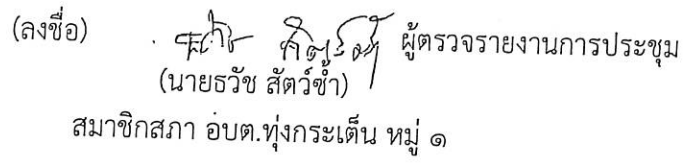 (ลงชื่อ) ผู้ตรวจรายงานการประชุม
(นายธวัช สัตว์ซ้ำ)
สมาชิกสภา อบต.ทุ่งกระเต็น หมู่ ๑